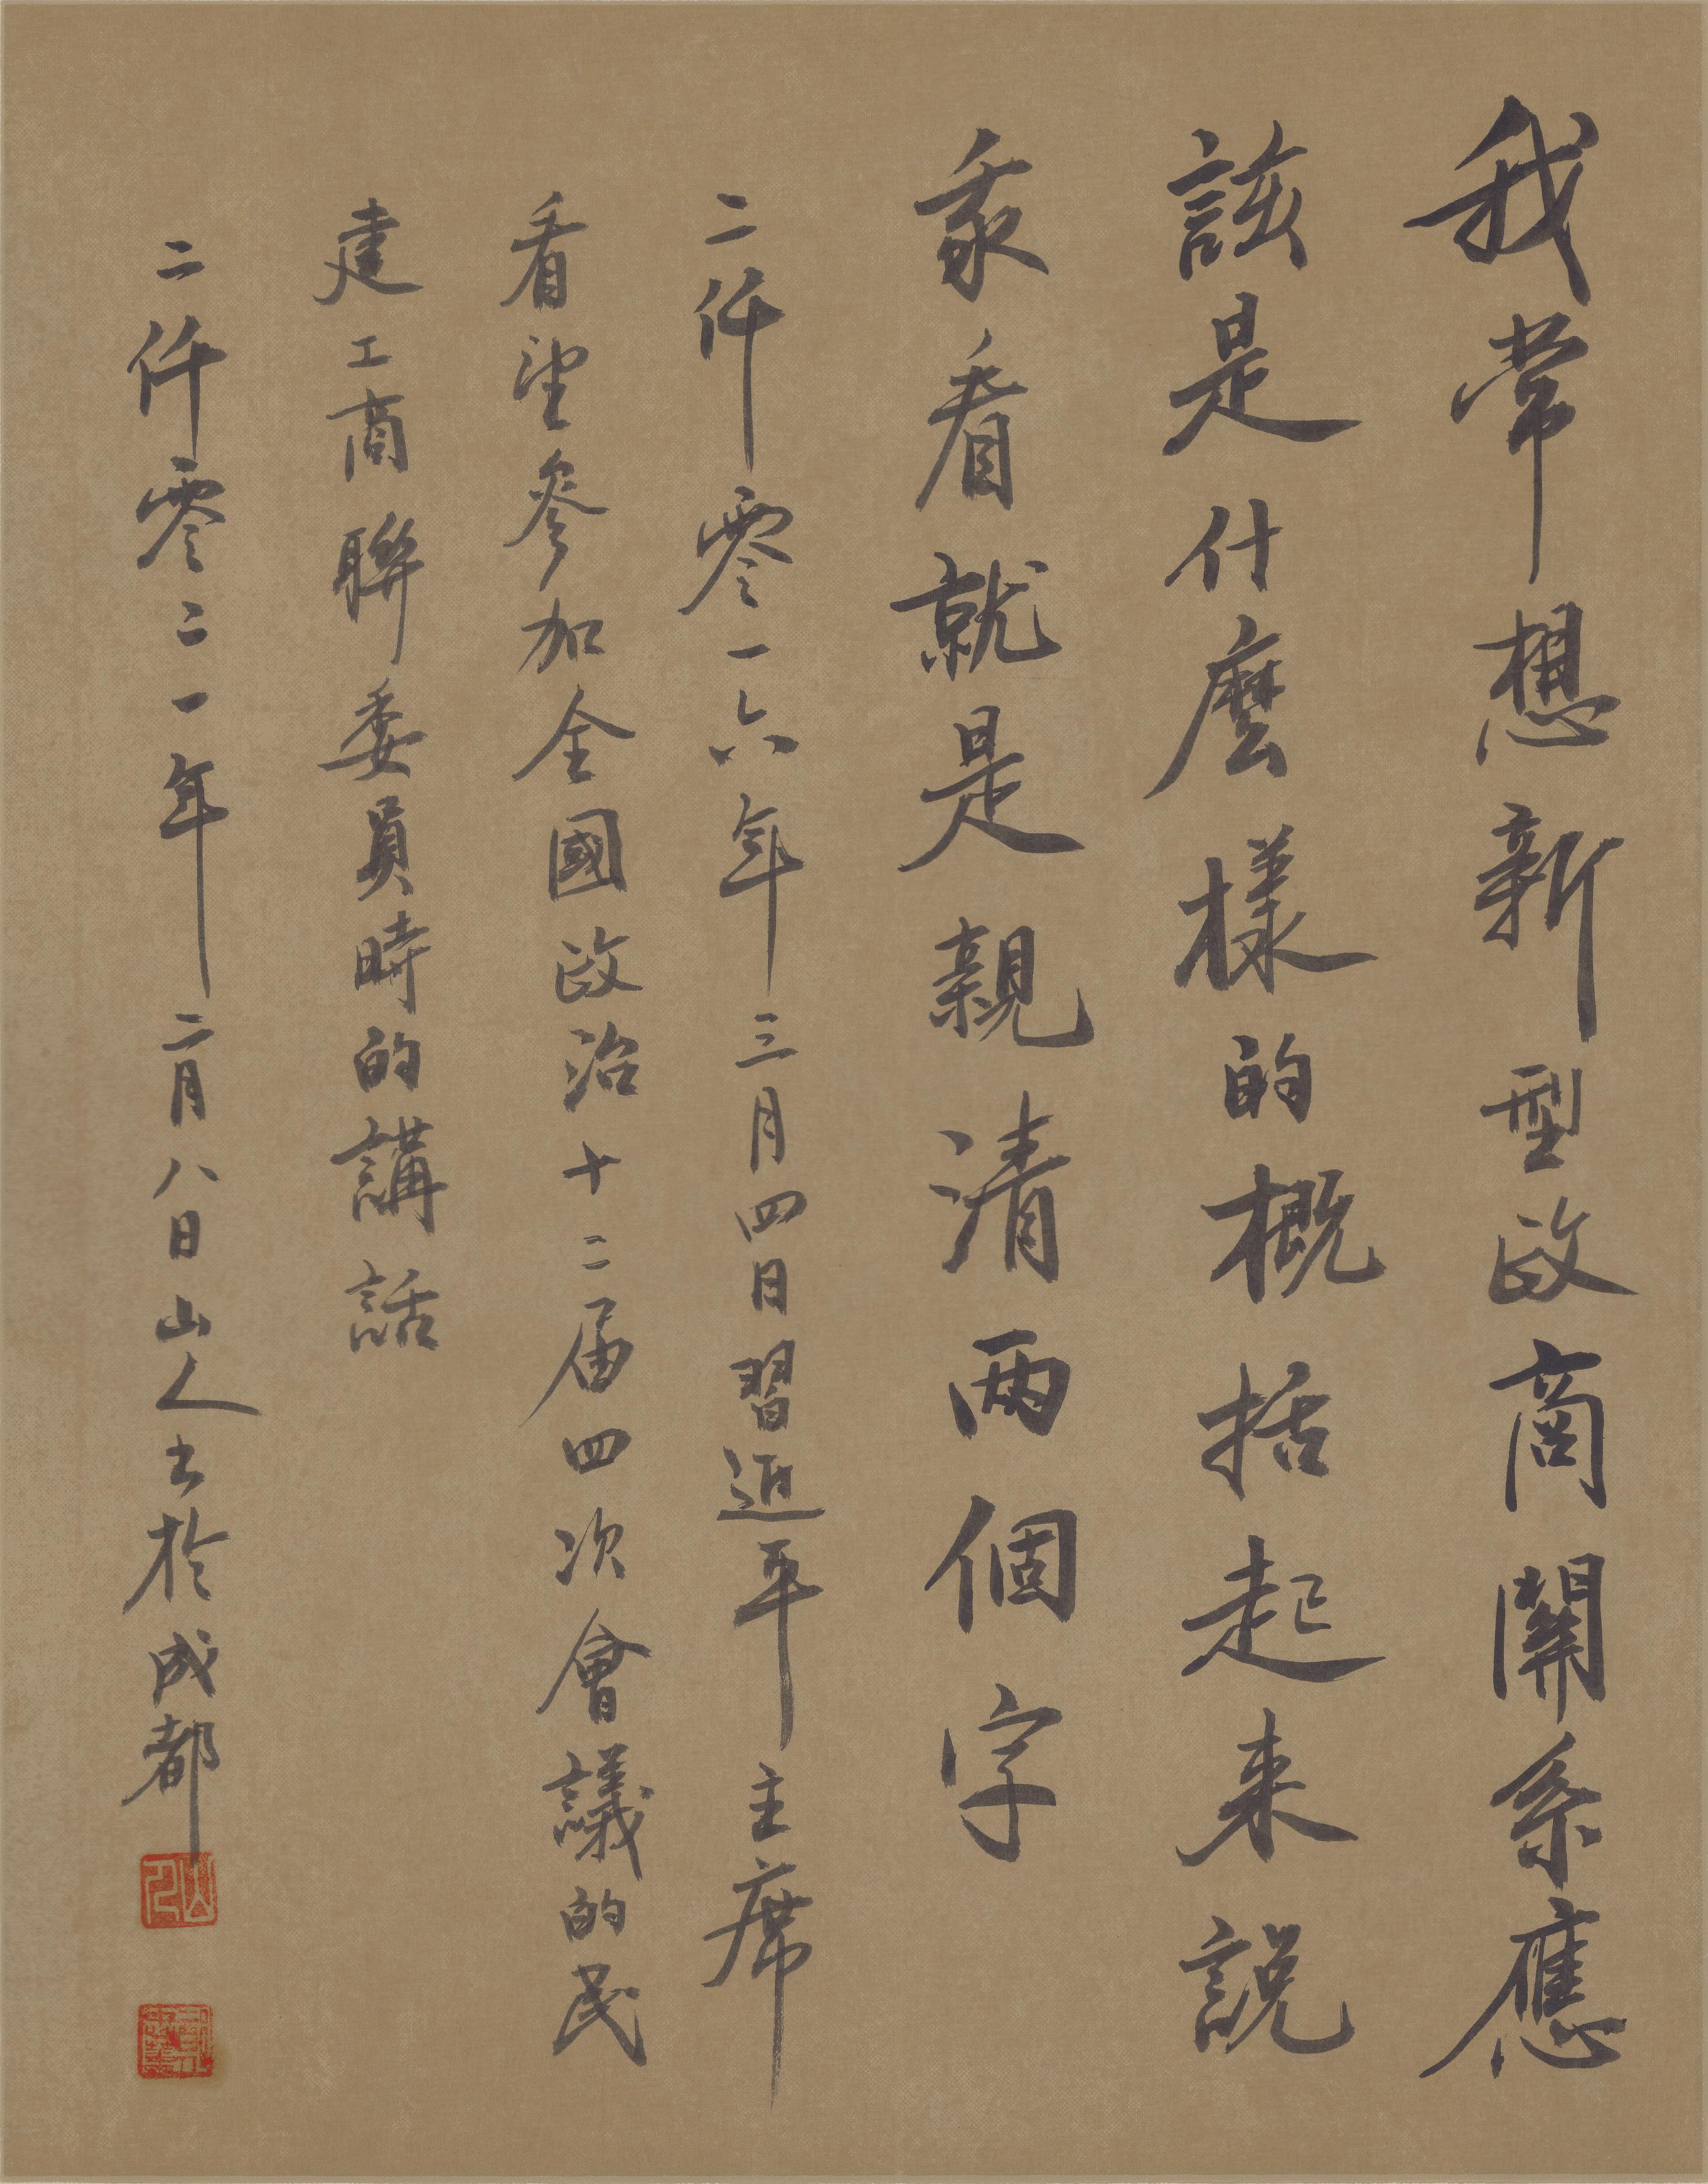 我常想新型政商關系應
該是什麽樣的概括起来説
我看就是親清兩個字
二仟零一六年三月四日習近平主席
看望參加全國政治十二届四次會議的民
建工商聯委員時的講話
二仟零二一年二月八日山人书於成都
山人